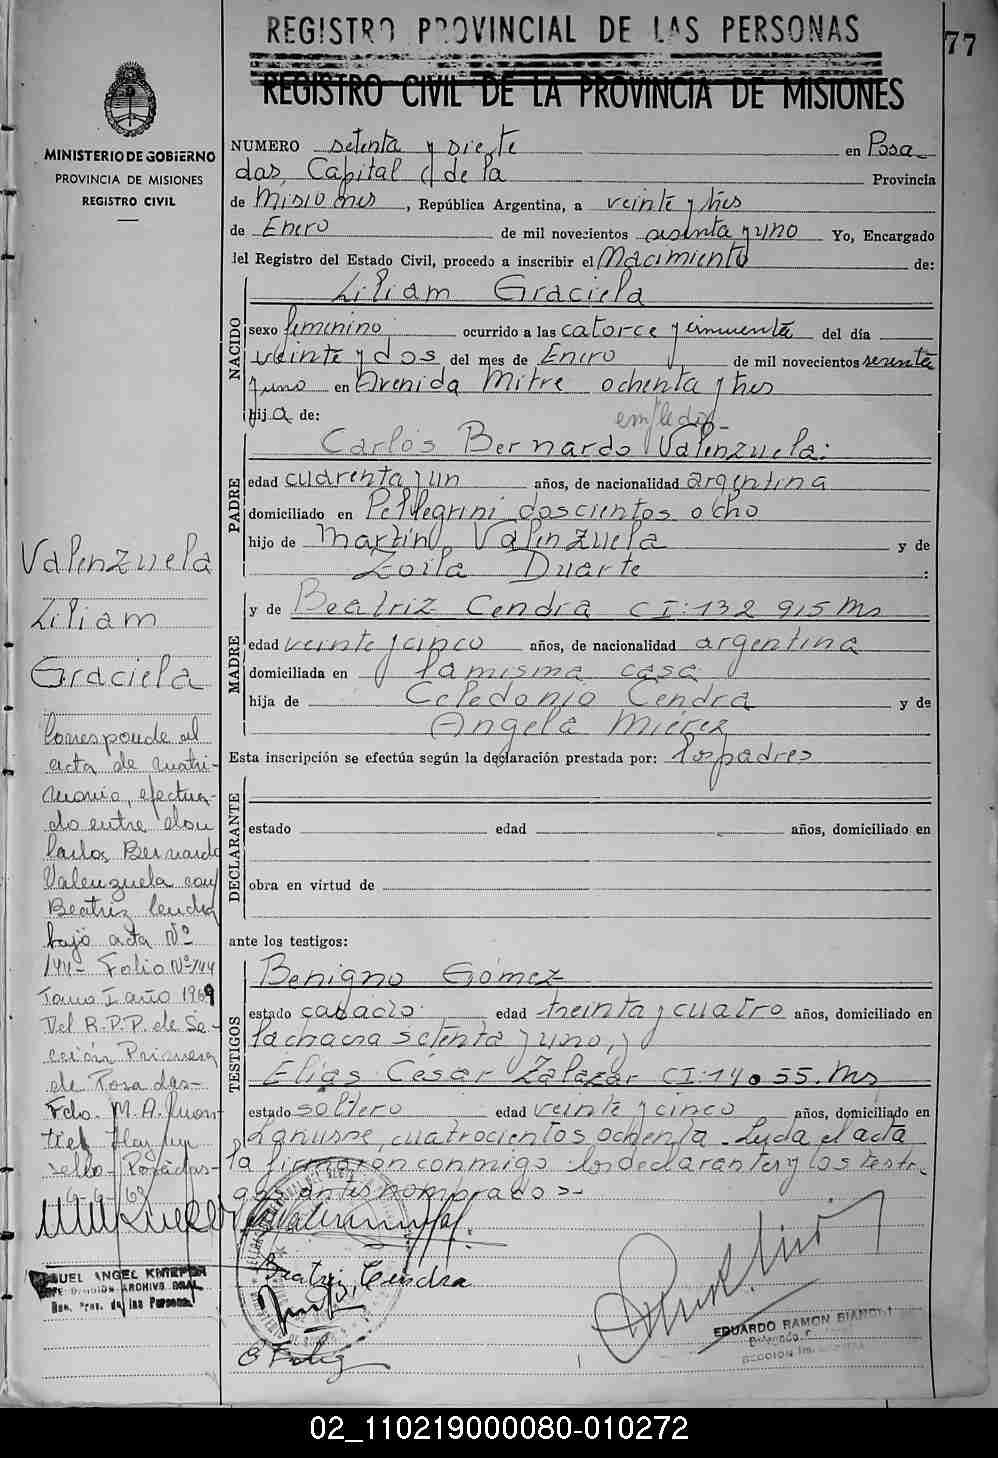 REGISTRO PROVINCIAL DE LAS PERSONAS
77
REGISTRO CIVIL DE LA PROVINCIA DE MISIONES
MINISTERIO DE GOBIERNO
PROVINCIA DE MISIONES
REGISTRO CIVIL
NUMERO setenta y siete en Posa-
das, Capital d de la Provincia
de Misiones, República Argentina, a veinte y tres
de Enero de mil novecientos sesenta y uno Yo, Encargado
del Registro del Estado Civil, procedo a inscribir el Nacimiento de:
NACIDO
Liliam Graciela
sexo femenino ocurrido a las catorce y cincuenta del día
veinte y dos del mes de Enero de mil novecientos sesenta
y uno en Avenida Mitre ochenta y tres
hija de:
empleado-
PADRE
Carlos Bernardo Valenzuela:
edad cuarenta y un años, de nacionalidad argentina
domiciliado en Pellegrini doscientos ocho
hijo de Martin Valenzuela y de
Zoila Duarte :
MADRE
y de Beatriz Cendra CI: 132 915 Ms
edad veinte y cinco años, de nacionalidad argentina
domiciliada en la misma casa
hija de Celedonio Cendra y de
Angela Mierez
Esta inscripción se efectúa según la declaración prestada por: los padres
DECLARANTE
estado edad años, domiciliado en
obra en virtud de
ante los testigos:
TESTIGOS
Benigno Gómez
estado casado edad treinta y cuatro años, domiciliado en
la chacra setenta y uno, y
Elias César Zalazar CI: 14055. Ms
estado soltero edad veinte y cinco años, domiciliado en
Lanusse, cuatrocientos ochenta. Leyda el acta
la firmarón conmigo los declarantes y los testi-
gos antes nombrados-
Beatriz Cendra
EDUARDO RAMON BIANCHI
Valenzuela
Liliam
Graciela
Corresponde al
acta de matri-
monio, efectua-
do entre don
Carlos Bernardo
Valenzuela con
Beatriz Cendra
bajo acta Nº
144- Folio Nº 144
Tomo I año 1969
Del R.P.P. de Se-
cción Primera
de Posadas-
Fdo. M. A. Mon-
tiel Hay un
sello- Posadas-
MIGUEL ANGEL
ARCHIVO GRAL.
Reg. Prov. de las Personas
02_110219000080-010272